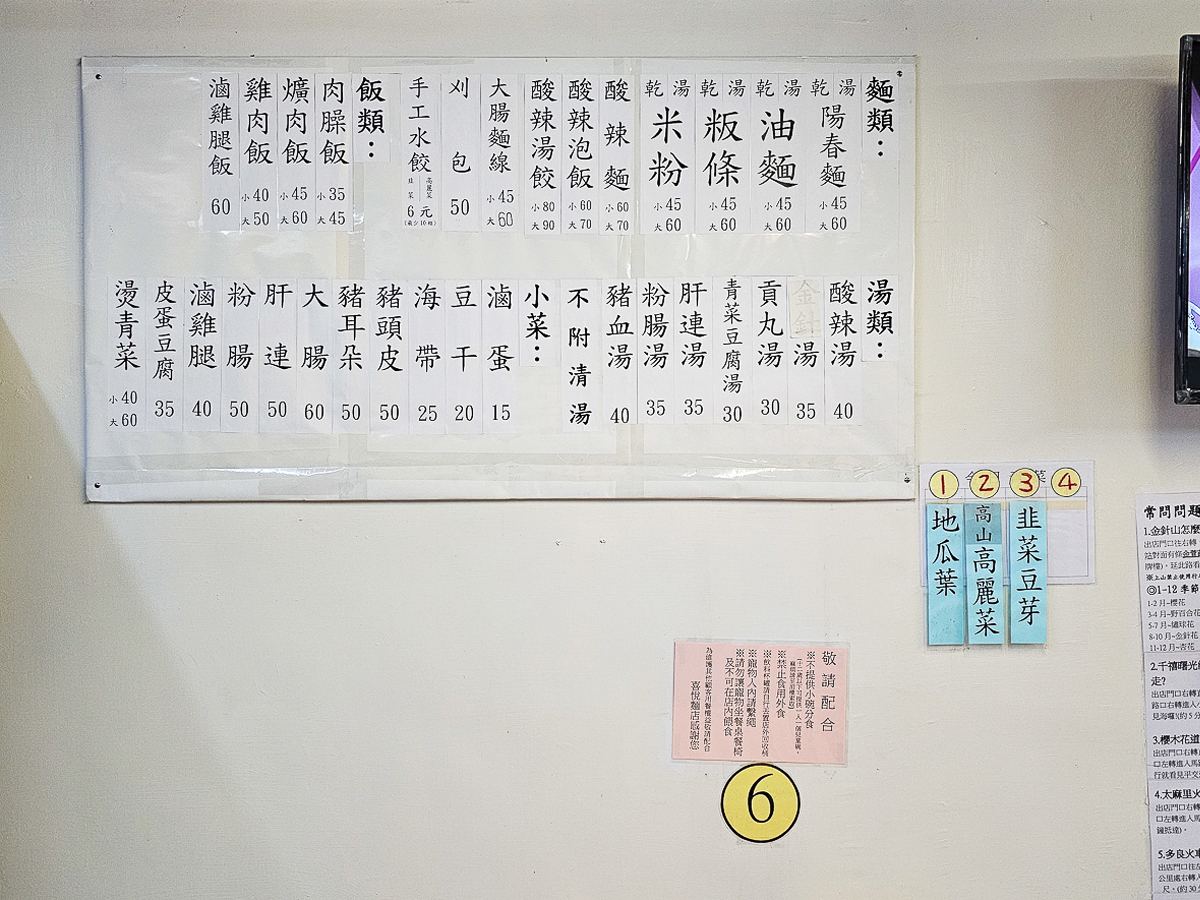 麵類：
乾 湯 陽春麵 小45 大60
乾 湯 油麵 小45 大60
乾 湯 粄條 小45 大60
乾 湯 米粉 小45 大60
酸辣麵 小60 大70
酸辣泡飯 小60 大70
酸辣湯餃 小80 大90
大腸麵線 小45 大60
刈包 50
手工水餃 高麗菜 韭菜 6元
飯類：
肉臊飯 小35 大45
爌肉飯 小45 大60
雞肉飯 小40 大50
滷雞腿飯 60
湯類：
酸辣湯 40
金針湯 35
貢丸湯 30
青菜豆腐湯 30
肝連湯 35
粉腸湯 35
豬血湯 40
不附清湯
小菜：
滷蛋 15
豆干 20
海帶 25
豬頭皮 50
豬耳朵 50
大腸 60
肝連 50
粉腸 50
滷雞腿 40
皮蛋豆腐 35
燙青菜 小40 大60
1 2 3 4
地瓜葉
高山高麗菜
韭菜豆芽
敬請配合
※不提供小碗分食
※禁止食用外食
※寵物入內請繫繩
※請勿讓寵物坐餐桌餐椅
及不可在店內餵食
為維護其他顧客用餐權益敬請配合
喜悅麵店感謝您
6
常問問題
1.金針山怎麼
出店門口往右轉
◎1-12季節
1-2月~櫻花
3-4月~野百合花
5-7月~繡球花
8-10月~金針花
11-12月~杏花
2.千禧曙光
走?
出店門口右轉
路口右轉進入
3.櫻木花道
出店門口右轉
口左轉進入
行就看見平交
4.太麻里火
出店門口右轉
口左轉進入
鐘抵達)。
5.多良火車
出店門口往左
公里處右轉
尺。(約30